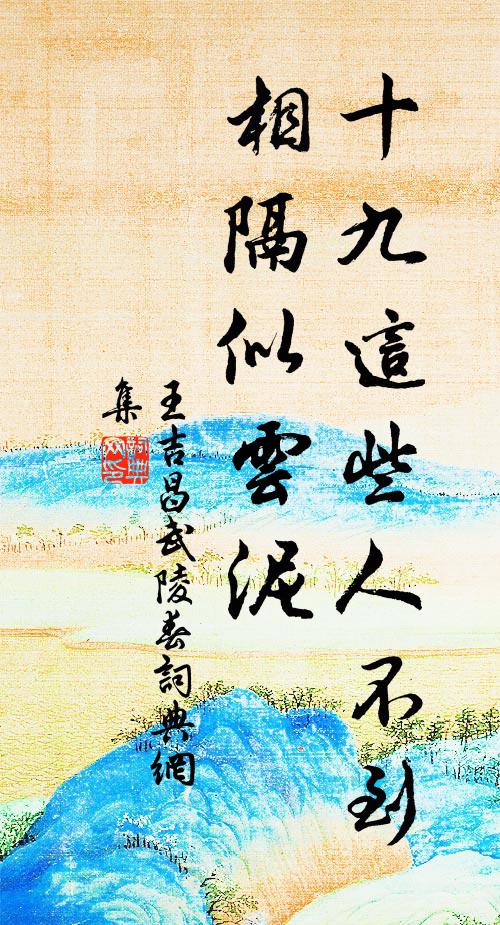 十九這些人不到
相隔似雲泥
王吉昌武陵春詞典網
集